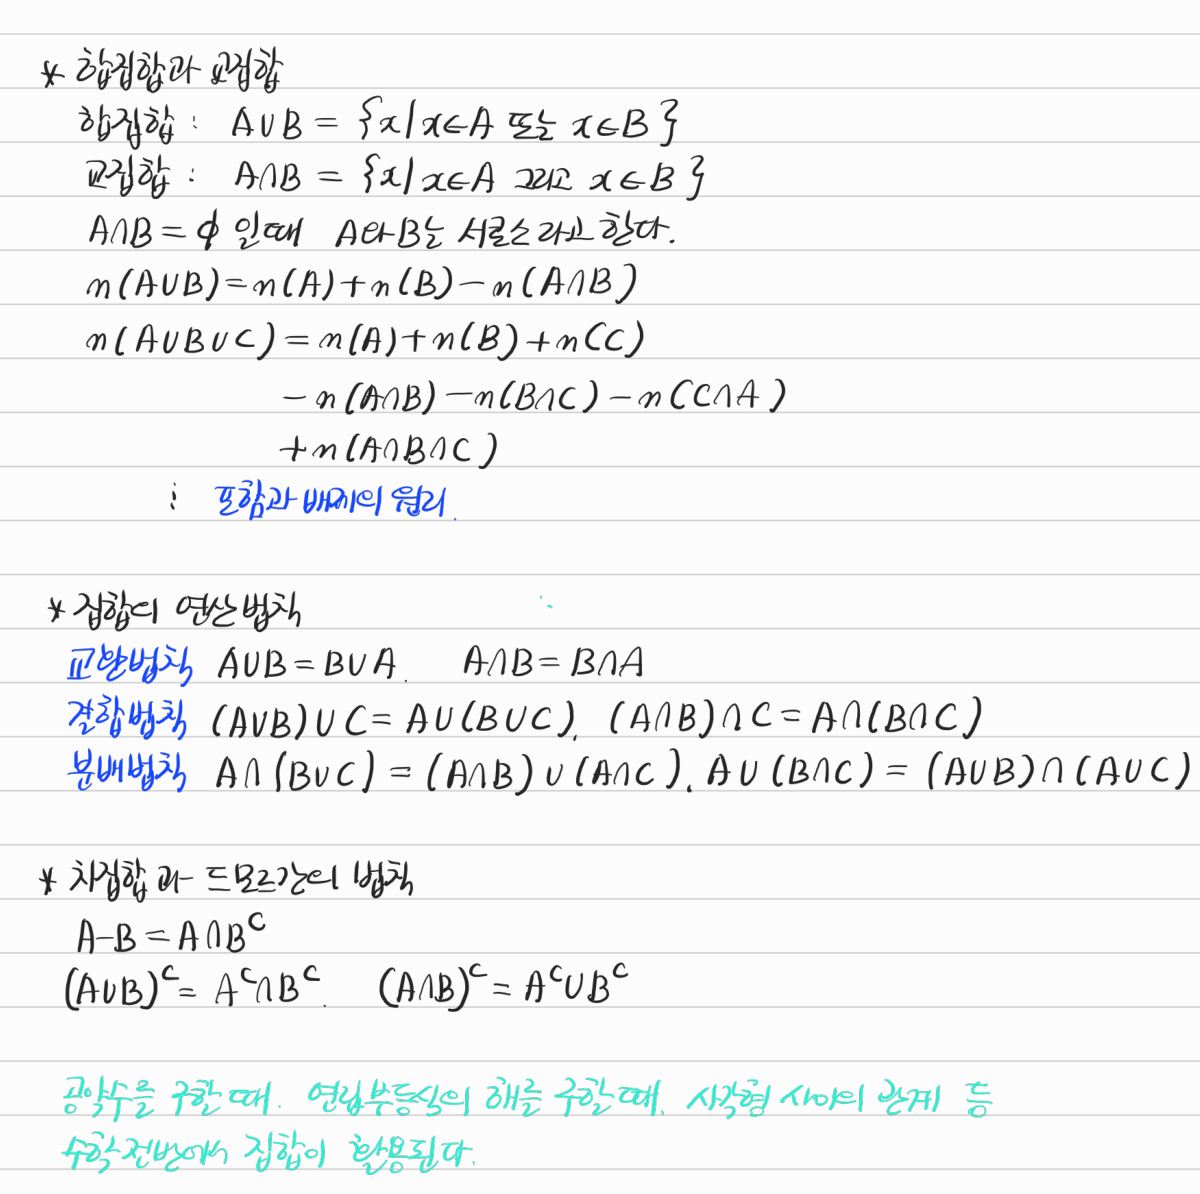 * 합집합과 교집합
합집합 : A∪B = {x|x∈A 또는 x∈B}
교집합 : A∩B = {x|x∈A 그리고 x∈B}
A∩B = ϕ 일때 A와 B는 서로소라고 한다.
n(A∪B)=n(A)+n(B)-n(A∩B)
n(A∪B∪C)=n(A)+n(B)+n(C)
-n(A∩B)-n(B∩C)-n(C∩A)
+n(A∩B∩C)
⋮ 포함과 배제의 원리.
* 집합의 연산법칙
교환법칙 A∪B=B∪A. A∩B=B∩A
결합법칙 (A∪B)∪C=A∪(B∪C), (A∩B)∩C=A∩(B∩C)
분배법칙 A∩(B∪C)=(A∩B)∪(A∩C), A∪(B∩C)=(A∪B)∩(A∪C)
* 차집합과 드모르간의 법칙
A-B=A∩Bᶜ
(A∪B)ᶜ=Aᶜ∩Bᶜ. (A∩B)ᶜ=Aᶜ∪Bᶜ
공약수를 구할 때. 연립부등식의 해를 구할 때. 사각형 사이의 관계 등
수학 전반에서 집합이 활용된다.